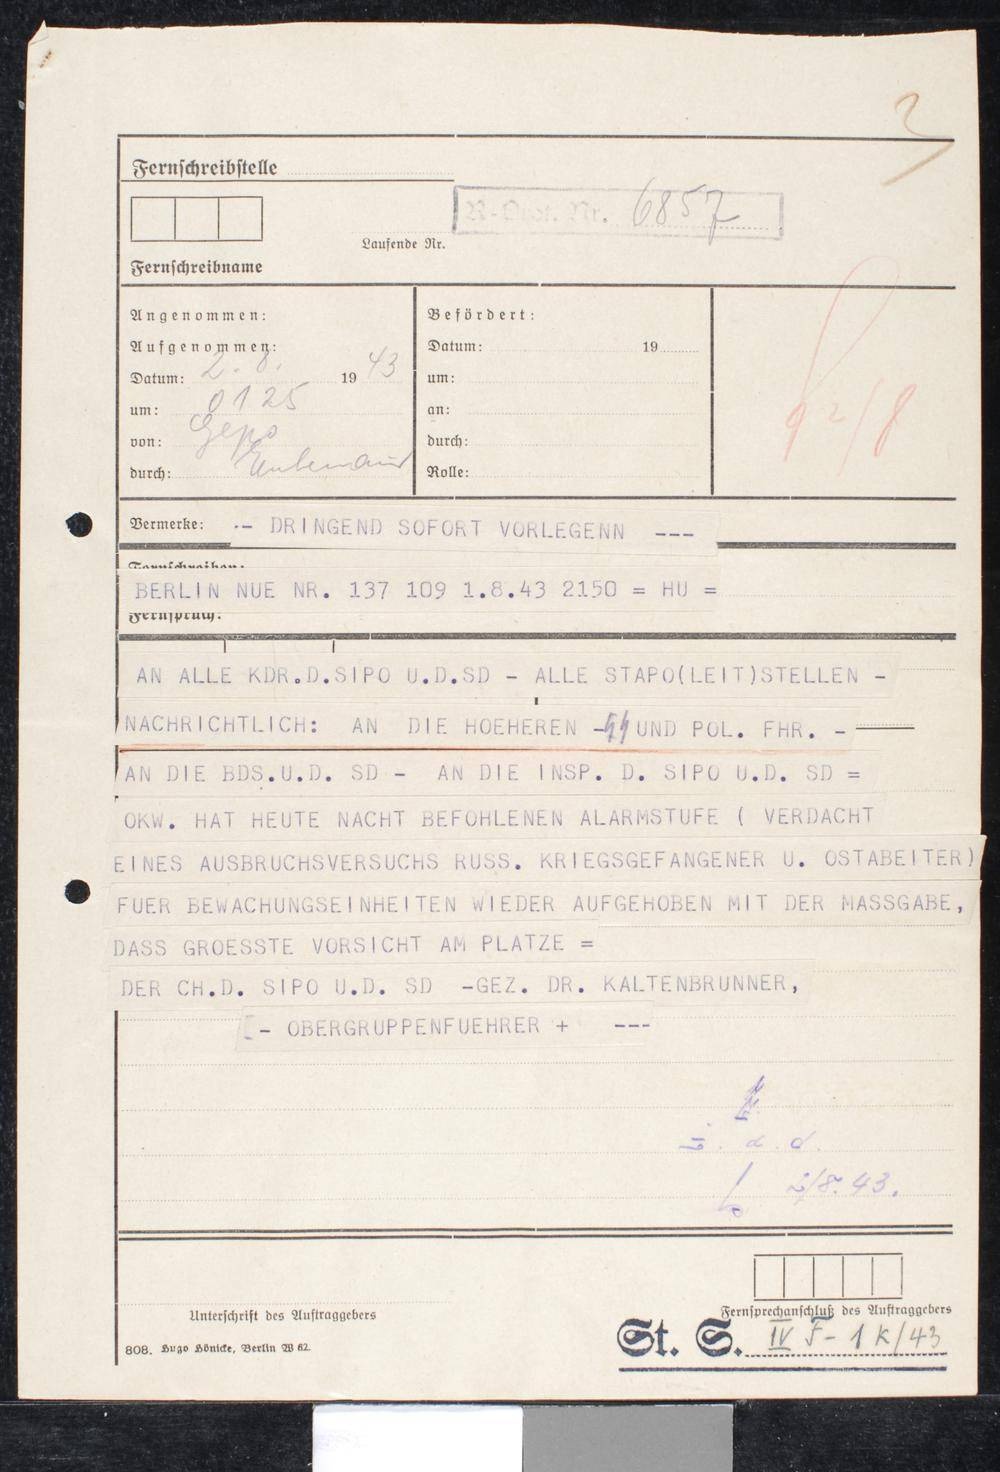 Fernschreibstelle
R-Prot. Nr. 6857
Laufende Nr.
Fernschreibname
Angenommen:
Aufgenommen:
Datum: 2. 8. 19 43
um: 0125
von: Gepo
durch:
Befördert:
Datum: 19
um:
an:
durch:
Rolle:
2/8
Vermerke: -- DRINGEND SOFORT VORLEGENN ---
Fernschreiben:
BERLIN NUE NR. 137 109 1.8.43 2150 = HU =
Fernspruch:
AN ALLE KDR.D.SIPO U.D.SD - ALLE STAPO(LEIT)STELLEN -
NACHRICHTLICH: AN DIE HOEHEREN -SS UND POL. FHR. -
AN DIE BDS.U.D. SD - AN DIE INSP. D. SIPO U.D. SD =
OKW. HAT HEUTE NACHT BEFOHLENEN ALARMSTUFE ( VERDACHT
EINES AUSBRUCHSVERSUCHS RUSS. KRIEGSGEFANGENER U. OSTABEITER)
FUER BEWACHUNGSEINHEITEN WIEDER AUFGEHOBEN MIT DER MASSGABE,
DASS GROESSTE VORSICHT AM PLATZE =
DER CH.D. SIPO U.D. SD -GEZ. DR. KALTENBRUNNER,
- OBERGRUPPENFUEHRER + ---
z. d. d.
2/8. 43.
Unterschrift des Auftraggebers
Fernsprechanschluß des Auftraggebers
808. Hugo Hönicke, Berlin W 62.
St. S. IV F - 1 K/43